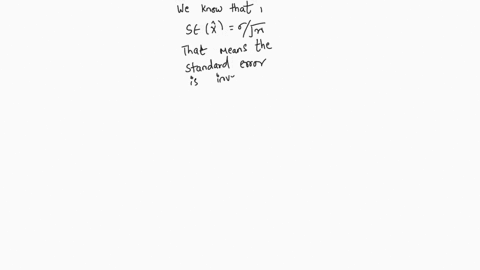 We know that,
SE (x̂) = σ/√n
That means the
standard error
is inv